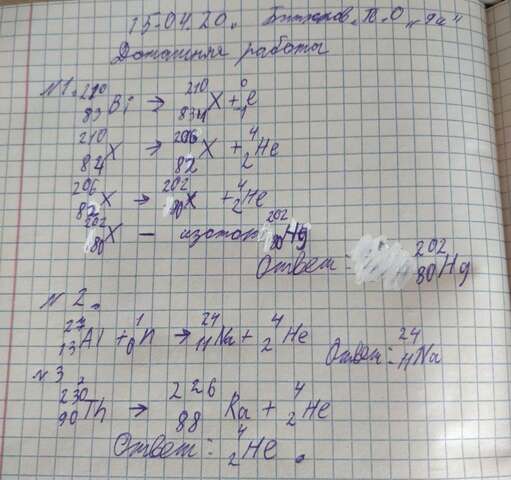 15.04.20. П.О „9а"
Домашняя работа
№1. ²¹⁰₈₃Bi → ²¹⁰₈₄X + ⁰₋₁e
²¹⁰₈₄X → ²⁰⁶₈₂X + ⁴₂He
²⁰⁶₈₂X → ²⁰²₈₀X + ⁴₂He
²⁰²₈₀X — изотоп ²⁰²₈₀Hg
Ответ: ²⁰²₈₀Hg
№ 2.
²⁷₁₃Al + ¹₀n → ²⁴₁₁Na + ⁴₂He Ответ: ²⁴₁₁Na
№ 3
²³⁰₉₀Th → ²²⁶₈₈Ra + ⁴₂He
Ответ: ⁴₂He.